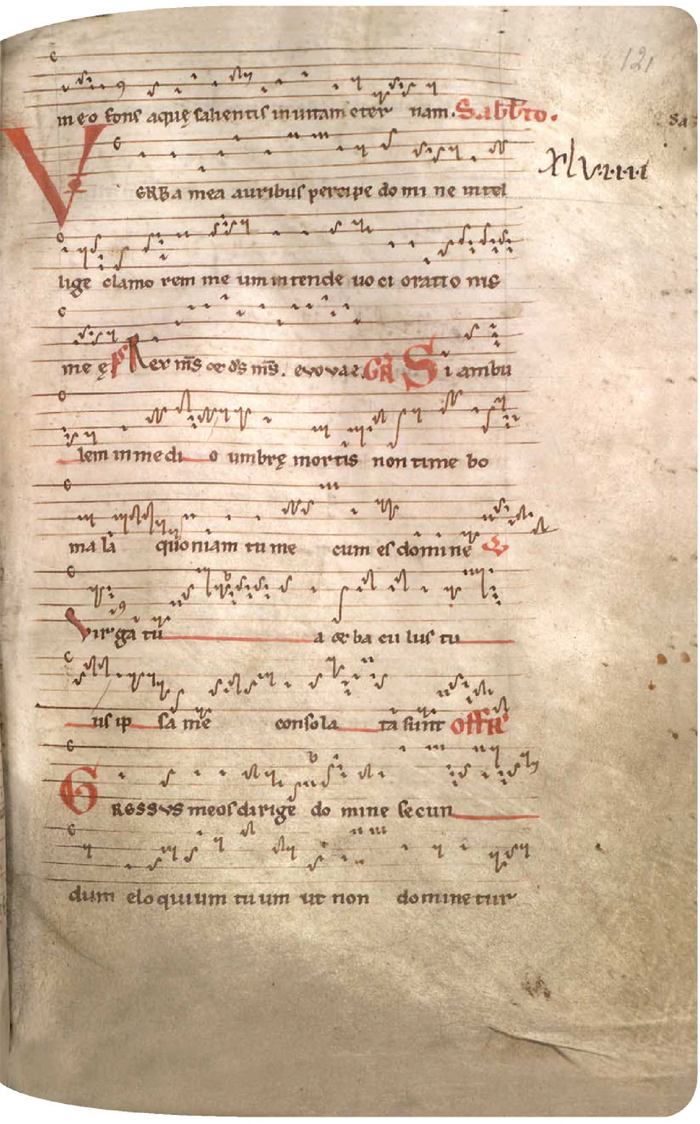 121
meo fons aquę salientis in uitam eter nam. Sabbto.
VERBA mea auribus percipe do mi ne intel
Xlviiii
lige clamo rem me um intende uo ci oratio nis
me ę ps Rex ms et ds ms. evovae. GR Si ambu
lem in medi o umbrę mortis non time bo
ma la quoniam tu me cum es domi ne
Virga tu a et ba cu lus tu
us ip sa me consola ta sunt Offr
GRESSVS meos dirige do mine secun
dum eloquium tu um ut non dominetur